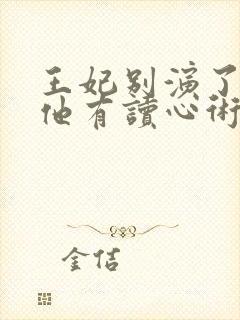 王妃別演了
他有讀心術
金佶